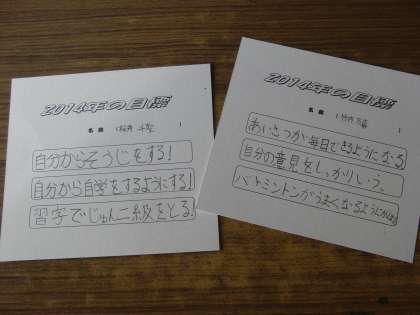 2014年の目標
名前（　　）
自分からそうじをする！
自分から自学をするようにする！
習字でじゅん二級をとる。
2014年の目標
名前（　　）
あいさつが毎日できるようになる。
自分の意見をしっかりいう。
バトミントンがうまくなるように